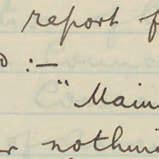 report f
:—
"Main
r nothin